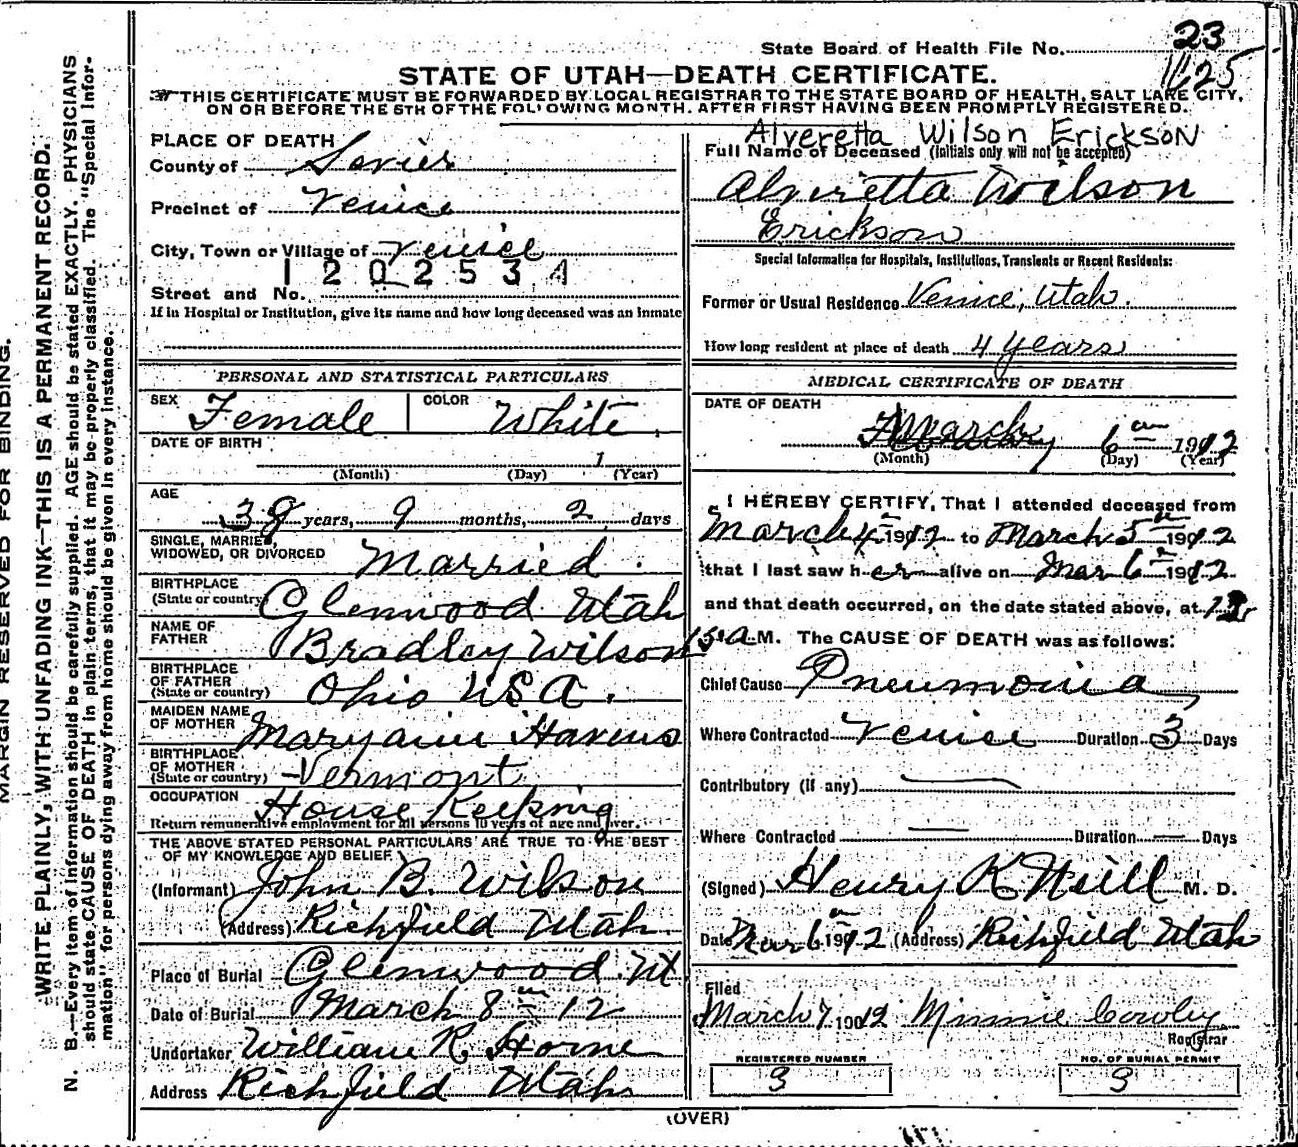 MARGIN RESERVED FOR BINDING.
WRITE PLAINLY, WITH UNFADING INK—THIS IS A PERMANENT RECORD.
N. B.—Every item of information should be carefully supplied. AGE should be stated EXACTLY. PHYSICIANS
should state CAUSE OF DEATH in plain terms, that it may be properly classified. The "Special Infor-
mation" for persons dying away from home should be given in every instance.
State Board of Health File No. 23
1625
STATE OF UTAH—DEATH CERTIFICATE.
THIS CERTIFICATE MUST BE FORWARDED BY LOCAL REGISTRAR TO THE STATE BOARD OF HEALTH, SALT LAKE CITY,
ON OR BEFORE THE 5TH OF THE FOLLOWING MONTH. AFTER FIRST HAVING BEEN PROMPTLY REGISTERED.
PLACE OF DEATH
County of Sevier
Precinct of Venice
City, Town or Village of Venice
1202534
Street and No.
If in Hospital or Institution, give its name and how long deceased was an inmate
PERSONAL AND STATISTICAL PARTICULARS
SEX Female COLOR White
DATE OF BIRTH
1
(Month) (Day) (Year)
AGE
38 years, 9 months, 2 days
SINGLE, MARRIED,
WIDOWED, OR DIVORCED Married
BIRTHPLACE
(State or country) Glenwood Utah
NAME OF
FATHER Bradley Wilson
BIRTHPLACE
OF FATHER
(State or country) Ohio USA.
MAIDEN NAME
OF MOTHER Maryann Havens
BIRTHPLACE
OF MOTHER
(State or country) Vermont
OCCUPATION House Keeping
Return remunerative employment for all persons 10 years of age and over.
THE ABOVE STATED PERSONAL PARTICULARS ARE TRUE TO THE BEST
OF MY KNOWLEDGE AND BELIEF
(Informant) John B. Wilson
(Address) Richfield Utah
Place of Burial Glenwood Ut
Date of Burial March 8th 12
Undertaker William R. Horne
Address Richfield Utah
Alveretta Wilson Erickson
Full Name of Deceased (Initials only will not be accepted)
Alviretta Wilson
Erickson
Special Information for Hospitals, Institutions, Transients or Recent Residents:
Former or Usual Residence Venice, Utah.
How long resident at place of death 4 years
MEDICAL CERTIFICATE OF DEATH
DATE OF DEATH
March 6 1912
(Month) (Day) (Year)
I HEREBY CERTIFY, That I attended deceased from
March 4 1912 to March 5 1912
that I last saw her alive on Mar 6 1912
and that death occurred, on the date stated above, at
A.M. The CAUSE OF DEATH was as follows:
Chief Cause Pneumonia
Where Contracted Venice Duration 3 Days
Contributory (if any) —
Where Contracted — Duration — Days
(Signed) Henry K Neill M. D.
Date Mar 6 1912 (Address) Richfield Utah
Filed
March 7 1912 Minnie Cowley
Registrar
REGISTERED NUMBER
3
NO. OF BURIAL PERMIT
3
(OVER)